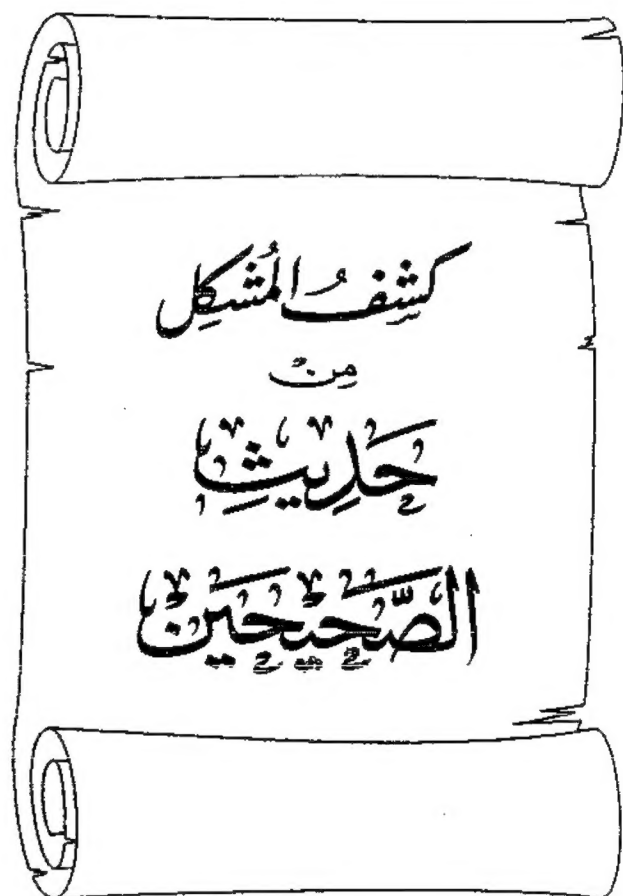 كشفُ المُشكِل
مِنْ
حَدِيثِ
الصَّحِيحَين